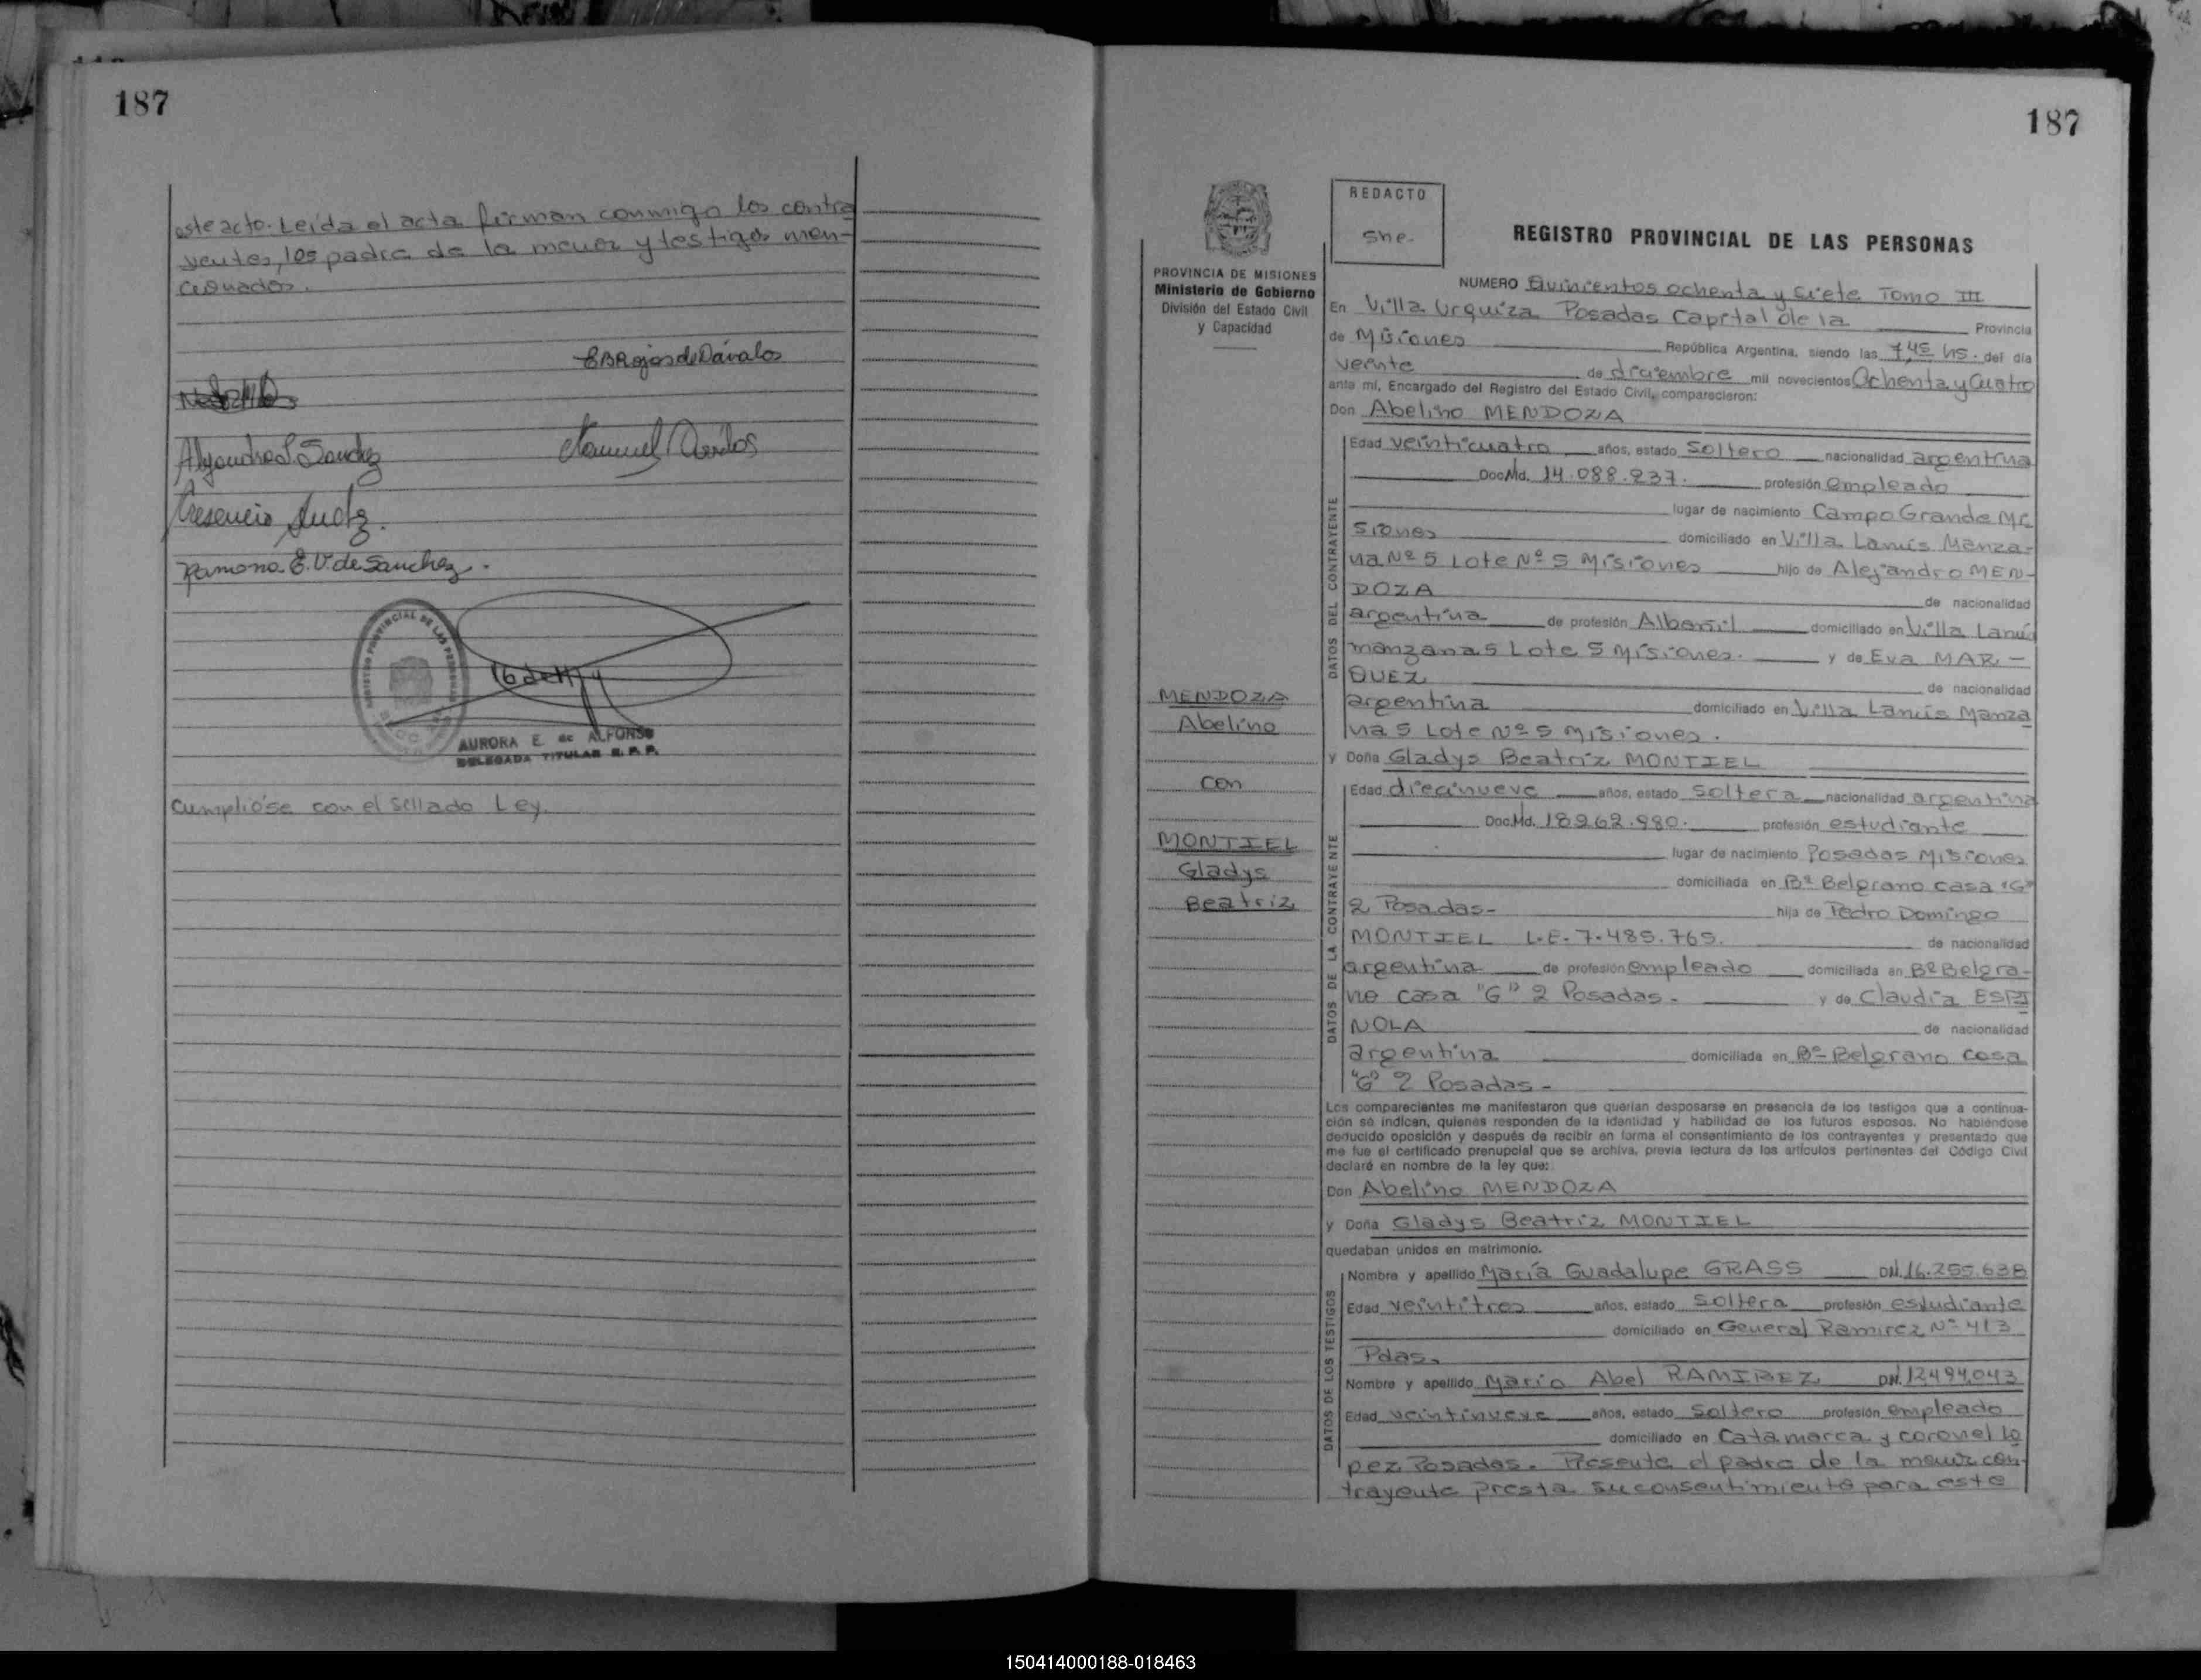 187
este acto. Leída el acta firman conmigo los contra
yentes, los padre de la menor y testigos men-
cionados.
EBRojas de Dávalos
Alejandro S. Sanchez
Manuel
Cresencio
Ramona E. V. de Sanchez.
REGISTRO PROVINCIAL DE LAS PERSONAS
AURORA E. de ALFONSO
DELEGADA TITULAR R. P. P.
Cumplióse con el sellado Ley.
187
REDACTO
she.
PROVINCIA DE MISIONES
Ministerio de Gobierno
División del Estado Civil
y Capacidad
MENDOZA
Abelino
con
MONTIEL
Gladys
Beatriz
REGISTRO PROVINCIAL DE LAS PERSONAS
NUMERO Quinientos ochenta y siete Tomo III
En Villa Urquiza Posadas Capital de la Provincia
de Misiones República Argentina, siendo las 7,45 hs. del día
veinte de diciembre mil novecientos Ochenta y Cuatro
ante mí, Encargado del Registro del Estado Civil, comparecieron:
Don Abelino MENDOZA
DATOS DEL CONTRAYENTE
Edad veinticuatro años, estado soltero nacionalidad argentina
Doc. Nd. 14.088.237. profesión empleado
lugar de nacimiento Campo Grande Mi
siones domiciliado en Villa Lanús Manza-
na Nº 5 Lote Nº 5 Misiones hijo de Alejandro MEN-
DOZA de nacionalidad
argentina de profesión Albañil domiciliado en Villa Lanús
manzana 5 Lote 5 Misiones. y de Eva MAR-
QUEZ de nacionalidad
argentina domiciliado en Villa Lanús Manza
na 5 Lote Nº 5 Misiones.
y Doña Gladys Beatriz MONTIEL
DATOS DE LA CONTRAYENTE
Edad diecinueve años, estado soltera nacionalidad argentina
Doc. Nd. 18262.980. profesión estudiante
lugar de nacimiento Posadas Misiones
domiciliada en Bº Belgrano casa "G"
2 Posadas- hija de Pedro Domingo
MONTIEL L.E. 7.485.765. de nacionalidad
argentina de profesión empleado domiciliada en Bº Belgra-
no casa "G" 2 Posadas. y de Claudia ESPI
NOLA de nacionalidad
argentina domiciliada en Bº Belgrano casa
"G" 2 Posadas-
Los comparecientes me manifestaron que querían desposarse en presencia de los testigos que a continua-
ción se indican, quienes responden de la identidad y habilidad de los futuros esposos. No habiéndose
deducido oposición y después de recibir en forma el consentimiento de los contrayentes y presentado que
me fue el certificado prenupcial que se archiva, previa lectura de los artículos pertinentes del Código Civil
declaré en nombre de la ley que:
Don Abelino MENDOZA
y Doña Gladys Beatriz MONTIEL
quedaban unidos en matrimonio.
DATOS DE LOS TESTIGOS
Nombre y apellido María Guadalupe GRASS DNI. 16.255.638
Edad veintitres años, estado soltera profesión estudiante
domiciliado en General Ramirez Nº 413
Pdas.
Nombre y apellido Mario Abel RAMIREZ DNI. 12494.043
Edad veintinueve años, estado soltero profesión empleado
domiciliado en Catamarca y coronel lo
pez Posadas. Presente el padre de la menor con-
trayente presta su consentimiento para este
150414000188-018463